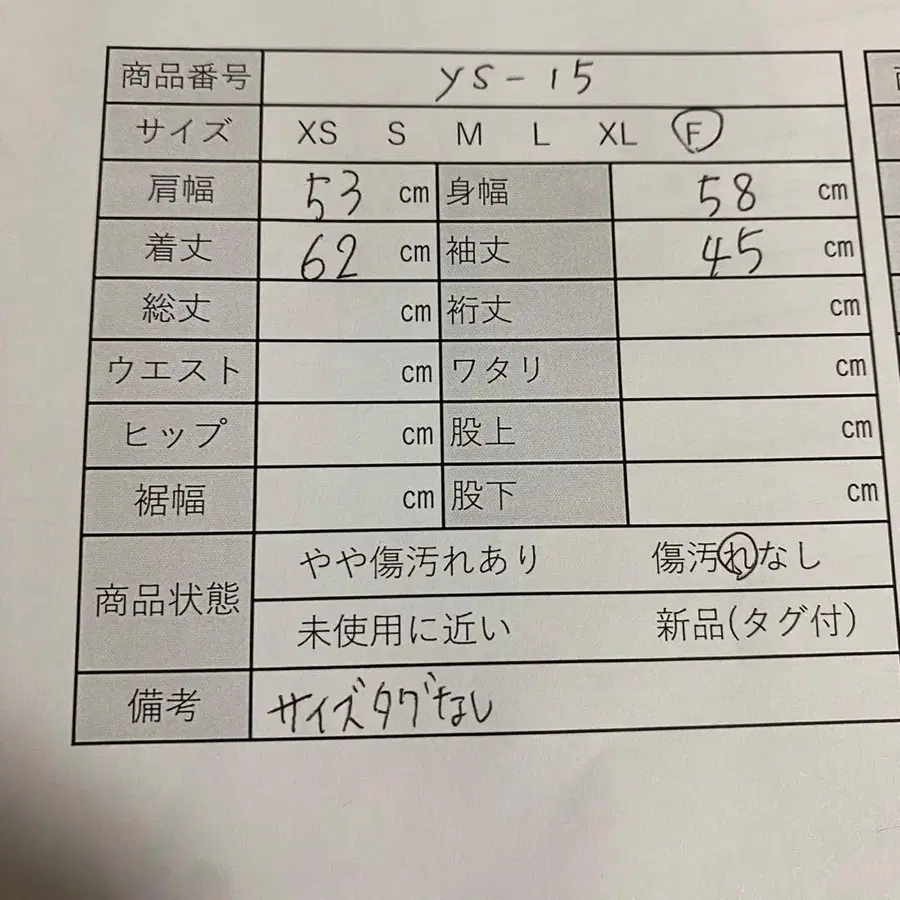 商品番号 YS-15
サイズ XS S M L XL F
肩幅 53 cm 身幅 58 cm
着丈 62 cm 袖丈 45 cm
総丈 cm 裄丈 cm
ウエスト cm ワタリ cm
ヒップ cm 股上 cm
裾幅 cm 股下 cm
商品状態 やや傷汚れあり 傷汚れなし
未使用に近い 新品(タグ付)
備考 サイズタグなし